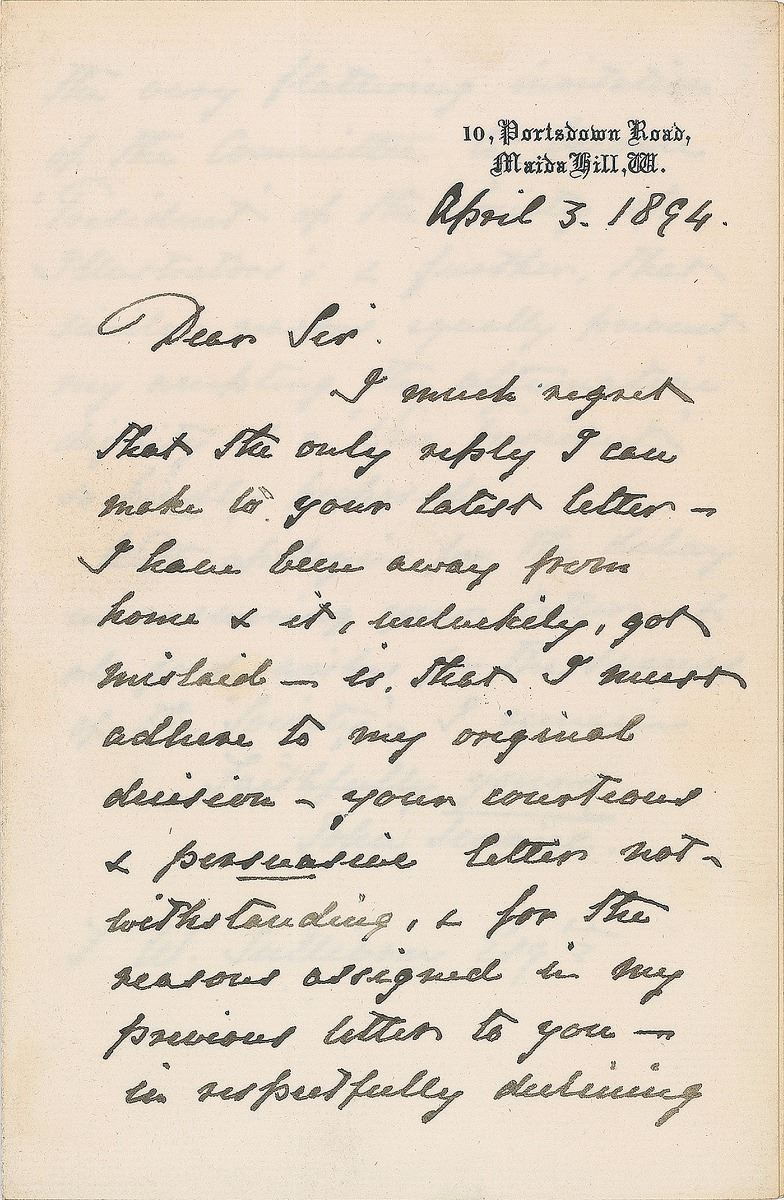 10, Portsdown Road,
Maida Hill, W.
April 3. 1894.
Dear Sir.
I much regret
that the only reply I can
make to your latest letter —
I have been away from
home & it, unluckily, got
mislaid — is, that I must
adhere to my original
decision - your courteous
& persuasive letter not-
withstanding, & for the
reasons assigned in my
previous letter to you —
in respectfully declining